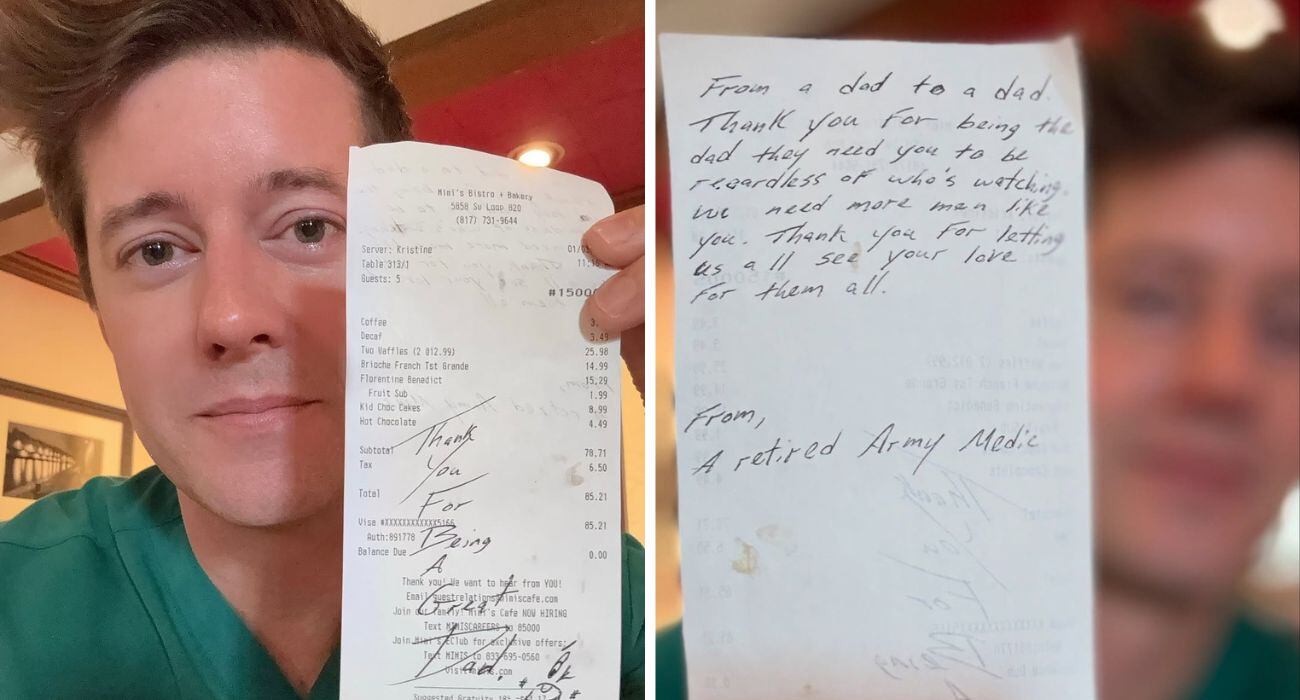 Mimi's Bistro + Bakery
5858 Sw Loop 820
(817) 731-9644
Server: Kristine 01/0
Table 313/1 11:16
Guests: 5
#1500
Coffee 3.
Decaf 3.49
Two Waffles (2 @12.99) 25.98
Brioche French Tst Grande 14.99
Florentine Benedict 15.29
Fruit Sub 1.99
Kid Choc Cakes 8.99
Hot Chocolate 4.49
Subtotal 78.71
Tax 6.50
Total 85.21
Visa #XXXXXXXXXXXX5166 85.21
Auth:891778
Balance Due 0.00
Thank
You
For
Being
A
Great
Dad!
Thank you! We want to hear from YOU!
Email guestrelations@mimiscafe.com
Join our family! Mimi's Cafe NOW HIRING
Text MIMISCAREERS to 85000
Join Mimi's EClub for exclusive offers:
Text MIMIS to 833-695-0560
Visit mimis.com
Suggested Gratuity 18%
From a dad to a dad.
Thank you for being the
dad they need you to be
regardless of who's watching.
we need more men like
you. Thank you for letting
us all see your love
for them all.
From,
A retired Army Medic